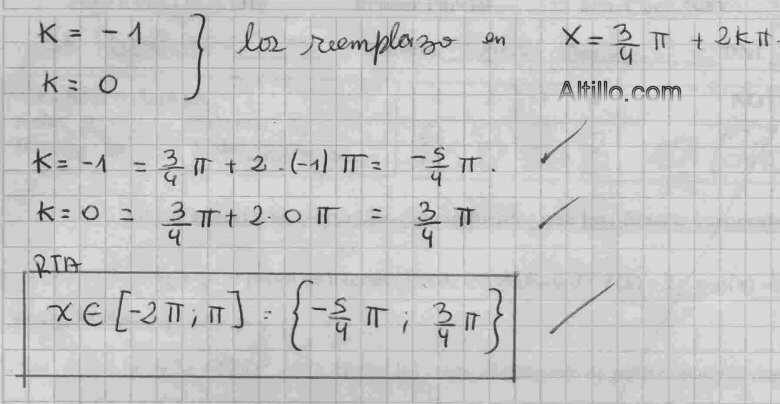 K = -1 } los reemplazo en X = 3/4 π + 2kπ.
K = 0
Altillo.com
K = -1 = 3/4 π + 2 . (-1) π = -5/4 π.
K = 0 = 3/4 π + 2 . 0 π = 3/4 π
RTA
x ∈ [-2π; π] = {-5/4 π ; 3/4 π}